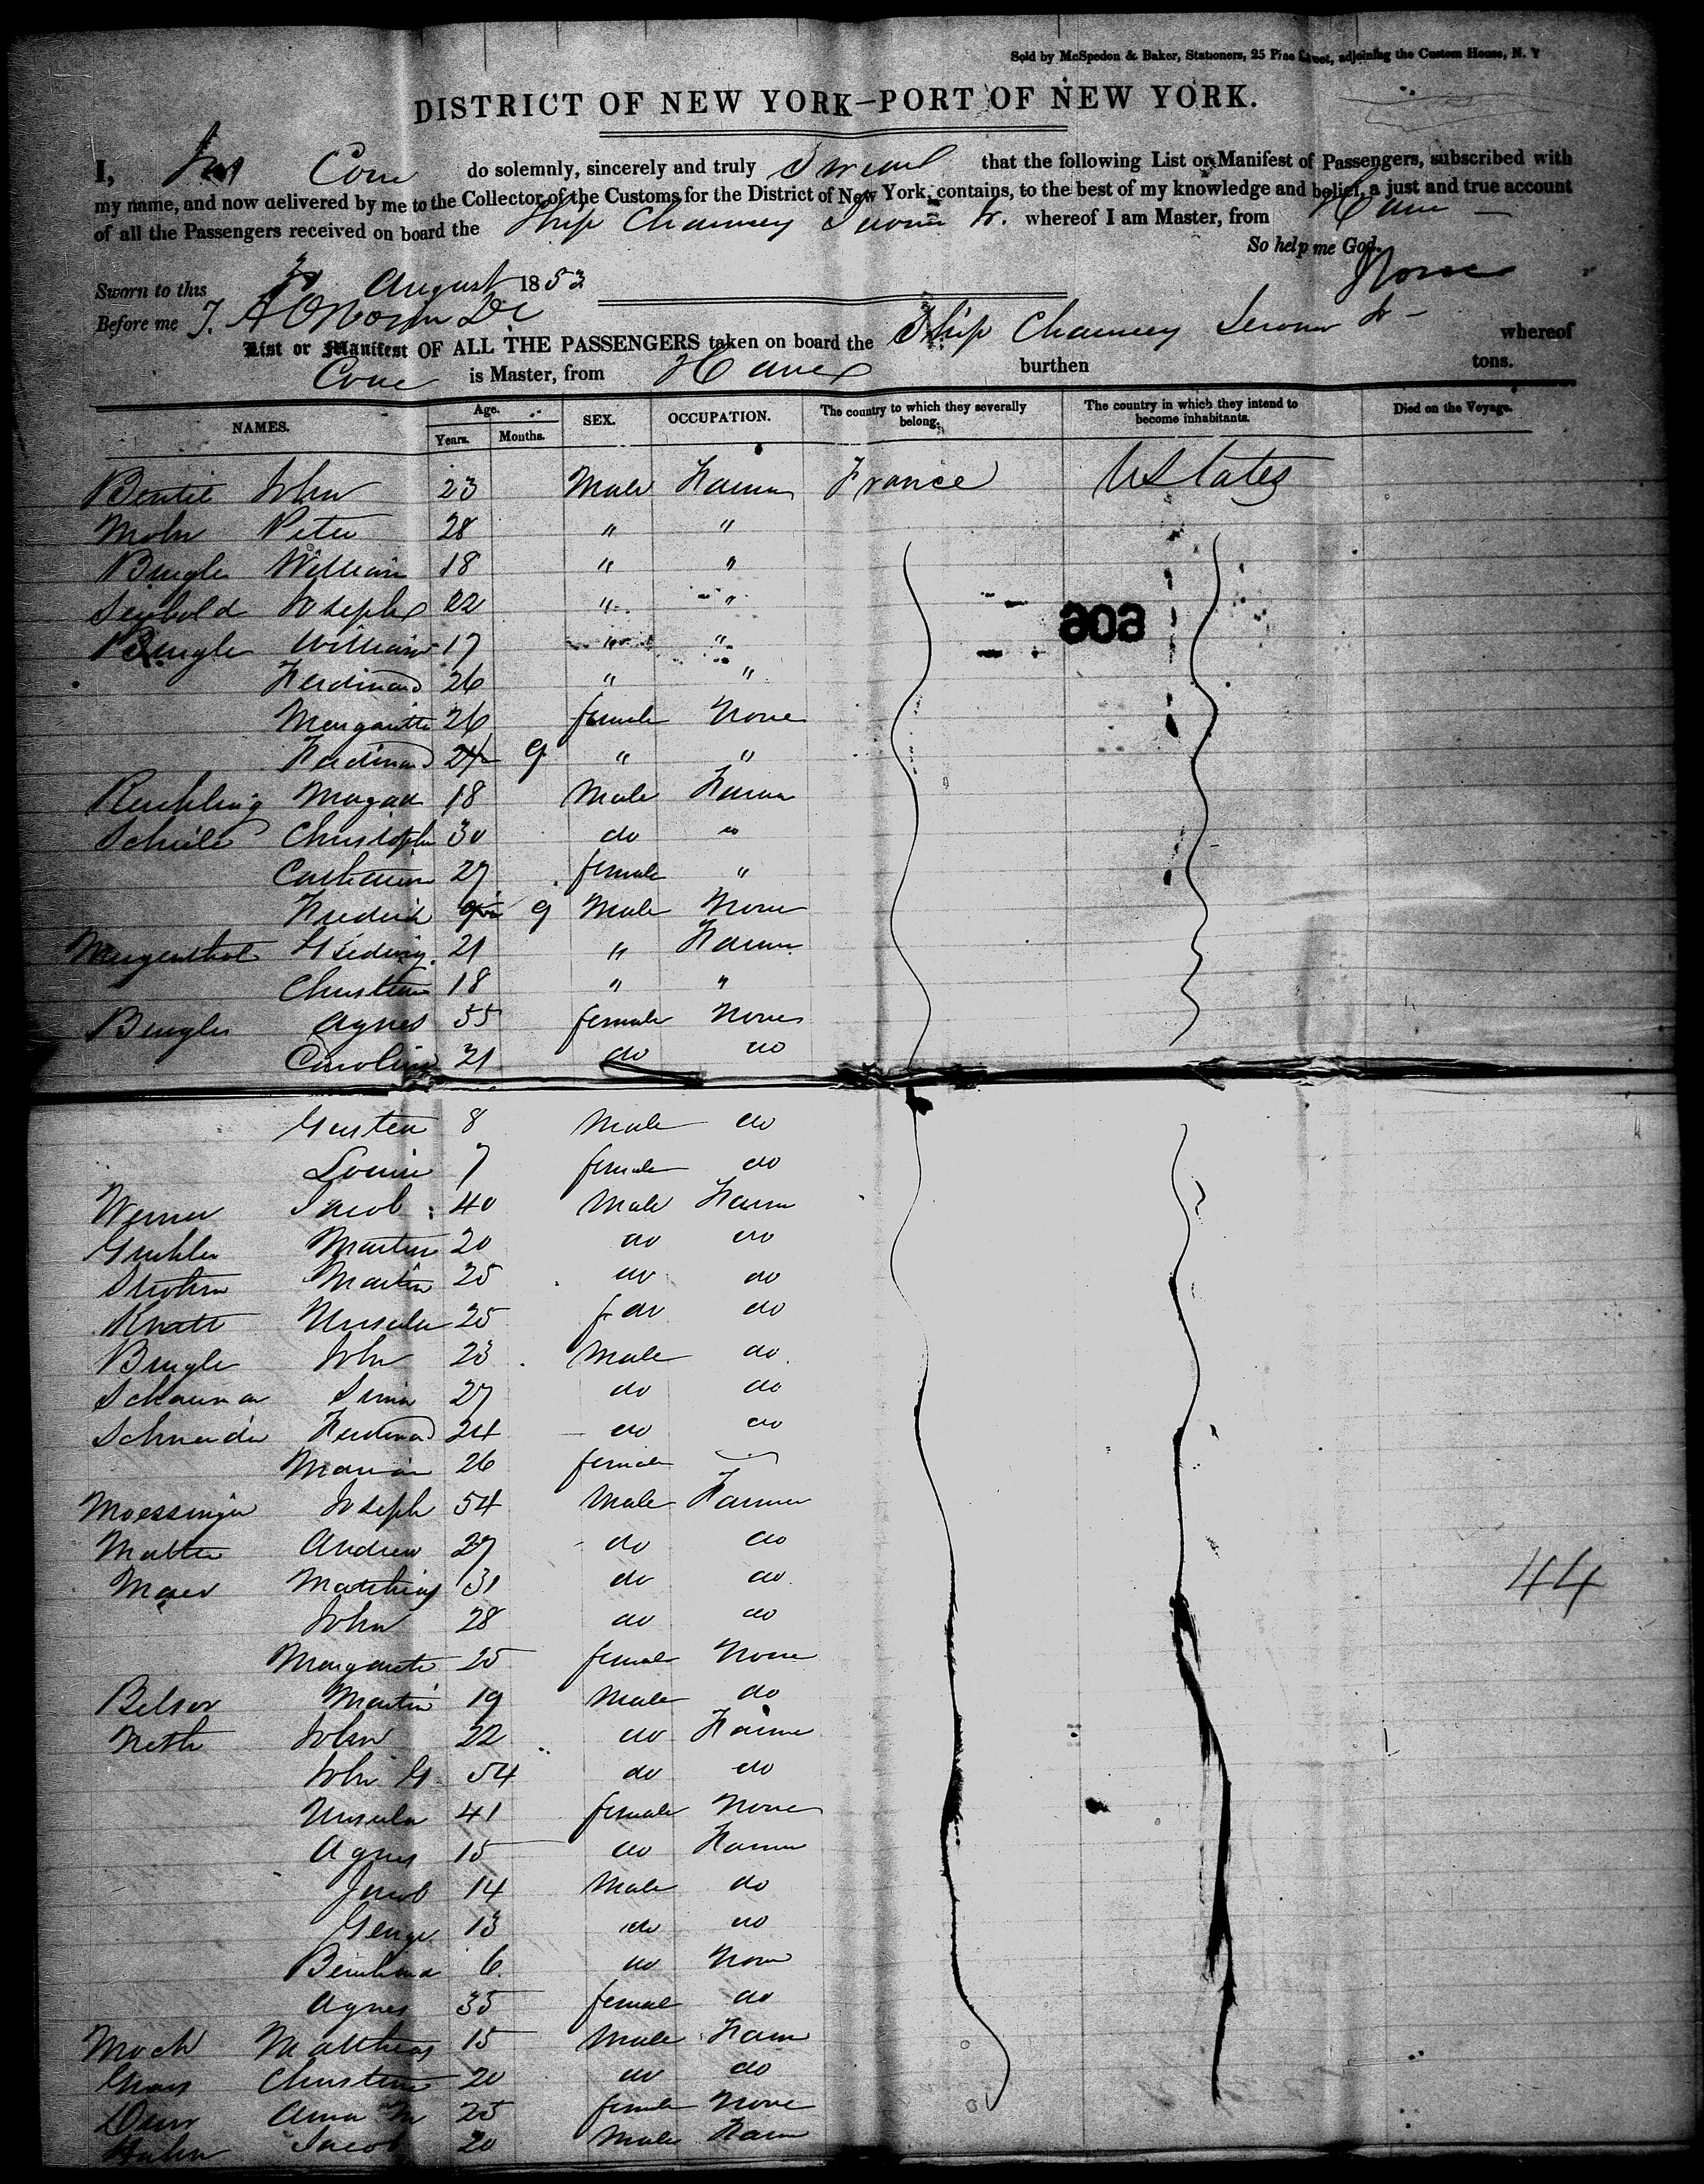 Sold by McSpedon & Baker, Stationers, 25 Pine Street, adjoining the Custom House, N. Y
DISTRICT OF NEW YORK–PORT OF NEW YORK.
I, Jas Cone do solemnly, sincerely and truly Swear that the following List or Manifest of Passengers, subscribed with
my name, and now delivered by me to the Collector of the Customs for the District of New York, contains, to the best of my knowledge and belief, a just and true account
of all the Passengers received on board the Ship Chauncey Jerome Jr. whereof I am Master, from Havre
So help me God.
Sworn to this August 1853
Before me
List or Manifest OF ALL THE PASSENGERS taken on board the Ship Chauncey Jerome Jr whereof
Cone is Master, from Havre burthen tons.
NAMES. Age. Years. Months. SEX. OCCUPATION. The country to which they severally belong. The country in which they intend to become inhabitants. Died on the Voyage.
John 23 Male Farmer France U States
Mohr Peter 28 " "
Bengle William 18 " "
Seybold Joseph 22 " "
Bengle William 17 " "
Ferdinand 26 " "
Margarette 26 female None
Ferdinand 9 " "
18 Male Farmer
Christoph 30 do "
Catharine 27 female "
Frederick 9 Male None
21 " Farmer
Christian 18 " "
Bengler Agnes 55 female None
Caroline 21 do do
8 Male do
Louise 7 female do
Werner Jacob 40 Male Farm
Martin 20 do do
Strohm Martin 25 do do
Ursula 25 f do do
Bengle John 23 Male do
27 do do
Schneider Ferdinand 24 do do
26 female
Moessinger Joseph 54 Male Farmer
Andrew 27 do do
Maier Matthias 31 do do
John 28 do do
Margarete 25 female None
Belser Martin 19 Male do
Neth John 22 do Farmer
John G. 54 do do
Ursula 41 female None
Agnes 15 do Farmer
Jacob 14 Male do
George 13 do do
Bernhard 6 do None
Agnes 35 female do
Moch Matthias 15 Male Farm
20 do do
Anna M 25 female None
Hahn Jacob 20 Male Farm
44